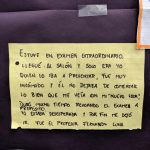 ESTUVE EN EXAMEN EXTRAORDINARIO,
LLEGUÉ AL SALÓN Y SOLO ERA YO
QUIEN LO IBA A PRESENTAR, FUE MUY
INCÓMODO Y ÉL NO DEJABA DE
LO BIEN QUE ME VEÍA CON MI
TIEMPO REVISANDO EL EXAMEN A
YO ESTABA DESESPERADA Y POR FIN ME DEJÓ
IR. FUE EL PROFESOR FERNANDO